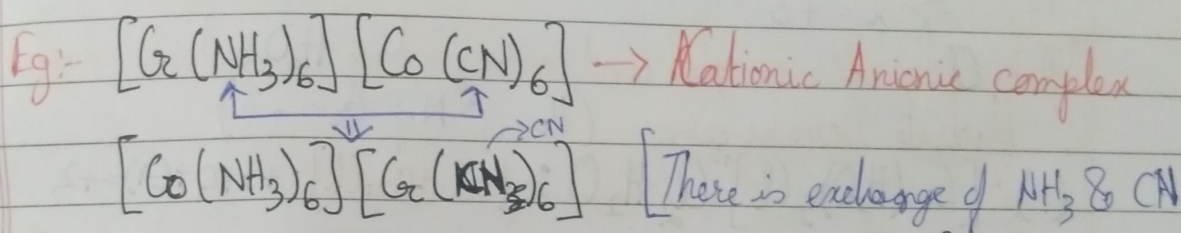 Eg:- [Cr(NH3)6] [Co(CN)6] → Cationic Anionic complex
→CN
[Co(NH3)6] [Cr(CN)6] [There is exchange of NH3 & CN